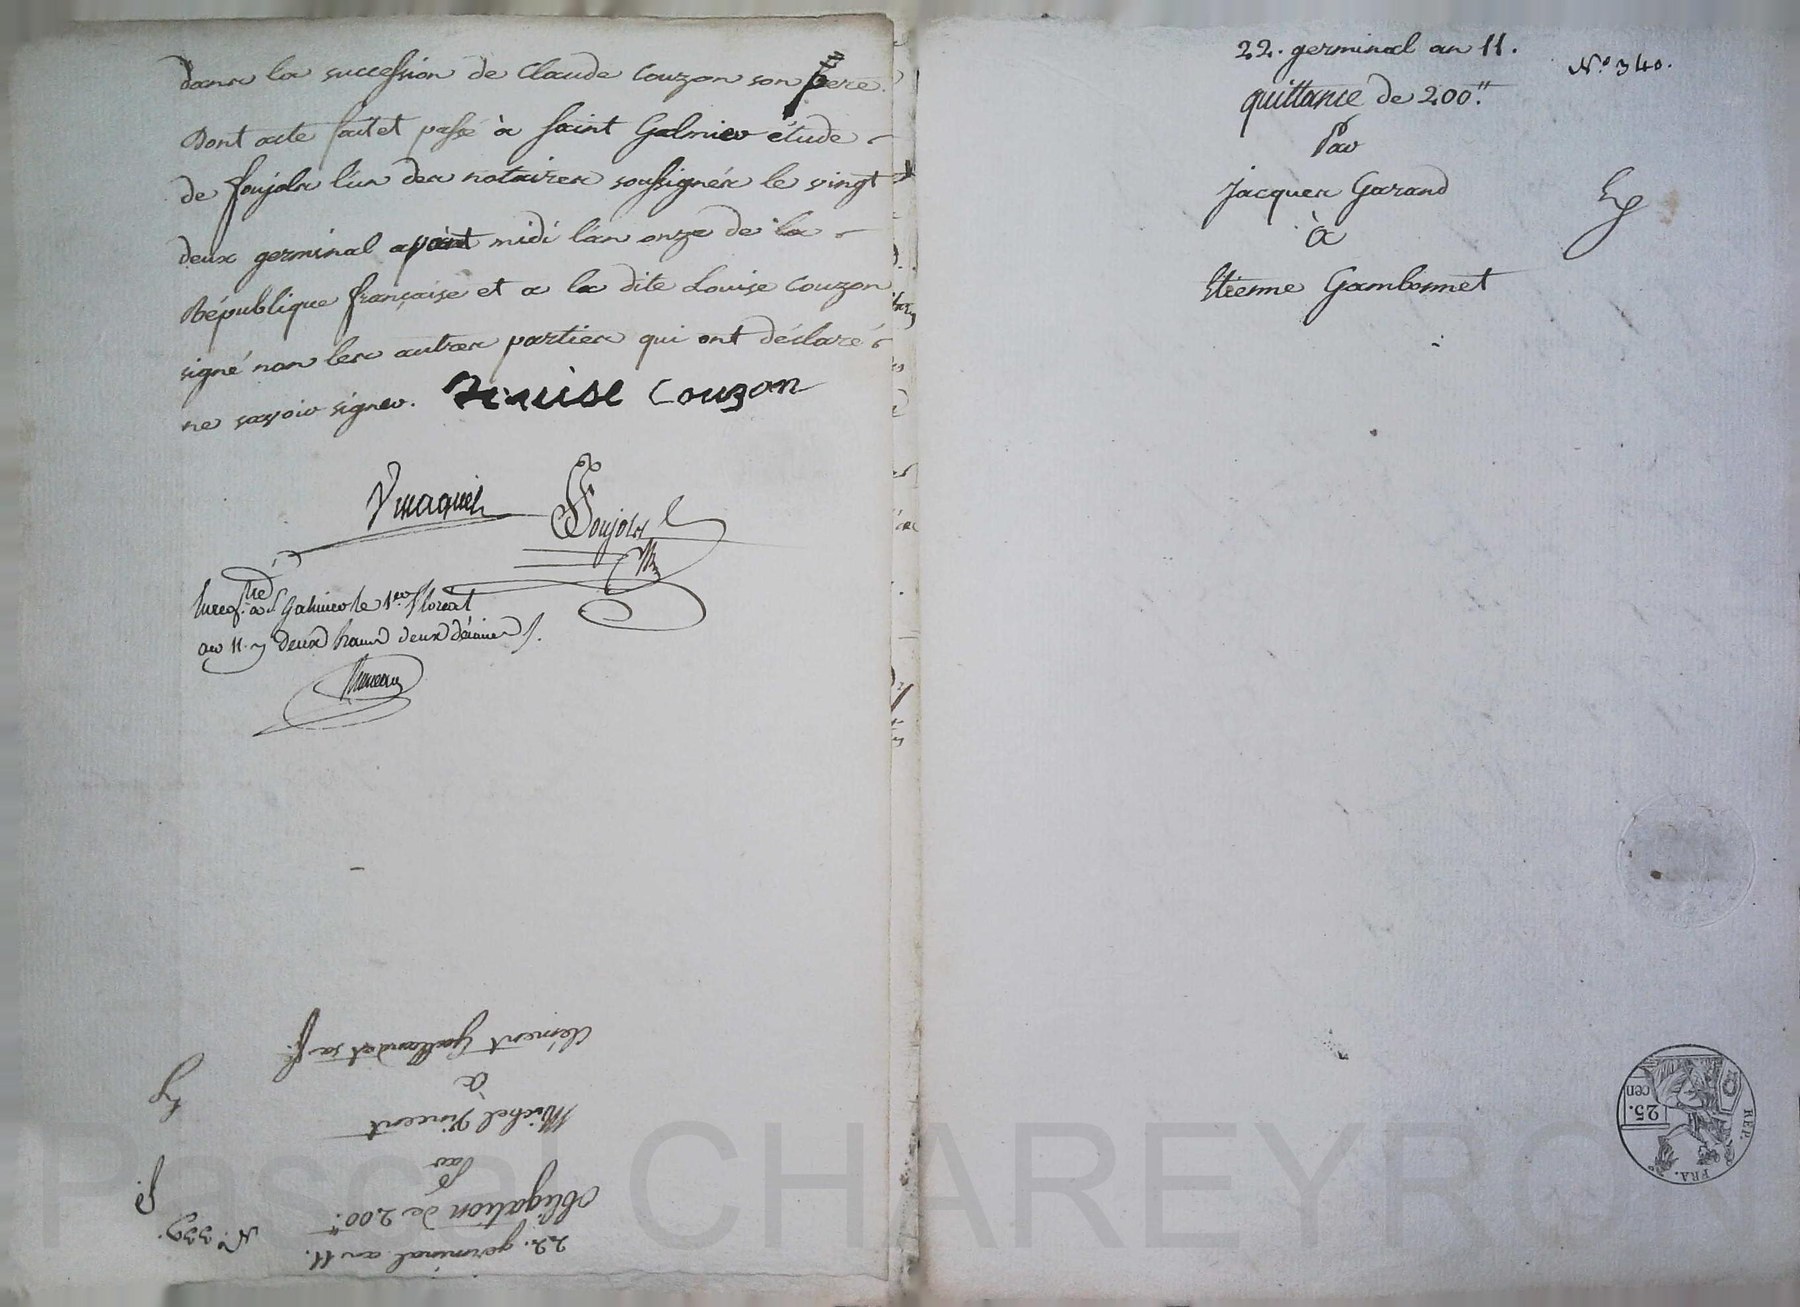 dans la succession de Claude Couzon son pere.
Dont acte fait et passé à Saint Galmier étude
de Soujols l'un des notaires soussignés le vingt
deux germinal avant midi l'an onze de la
République française et a la dite Louise Couzon
signé non les autres parties qui ont déclaré
ne savoir signer. Louise Couzon
Soujols
Enregtré à St Galmier le 1er floreal
an 11. deux francs deux décimes
22. germinal an 11.
N.o 339.
obligation de 200.#
Par
Michel Vincent
à
Clément Gaillard et sa f.
22. germinal an 11.
N.o 340.
quittance de 200.#
Par
Jacques Garand
à
Etienne Gambonnet
REP. FRA.
25.
cen
Pascal CHAREYRON